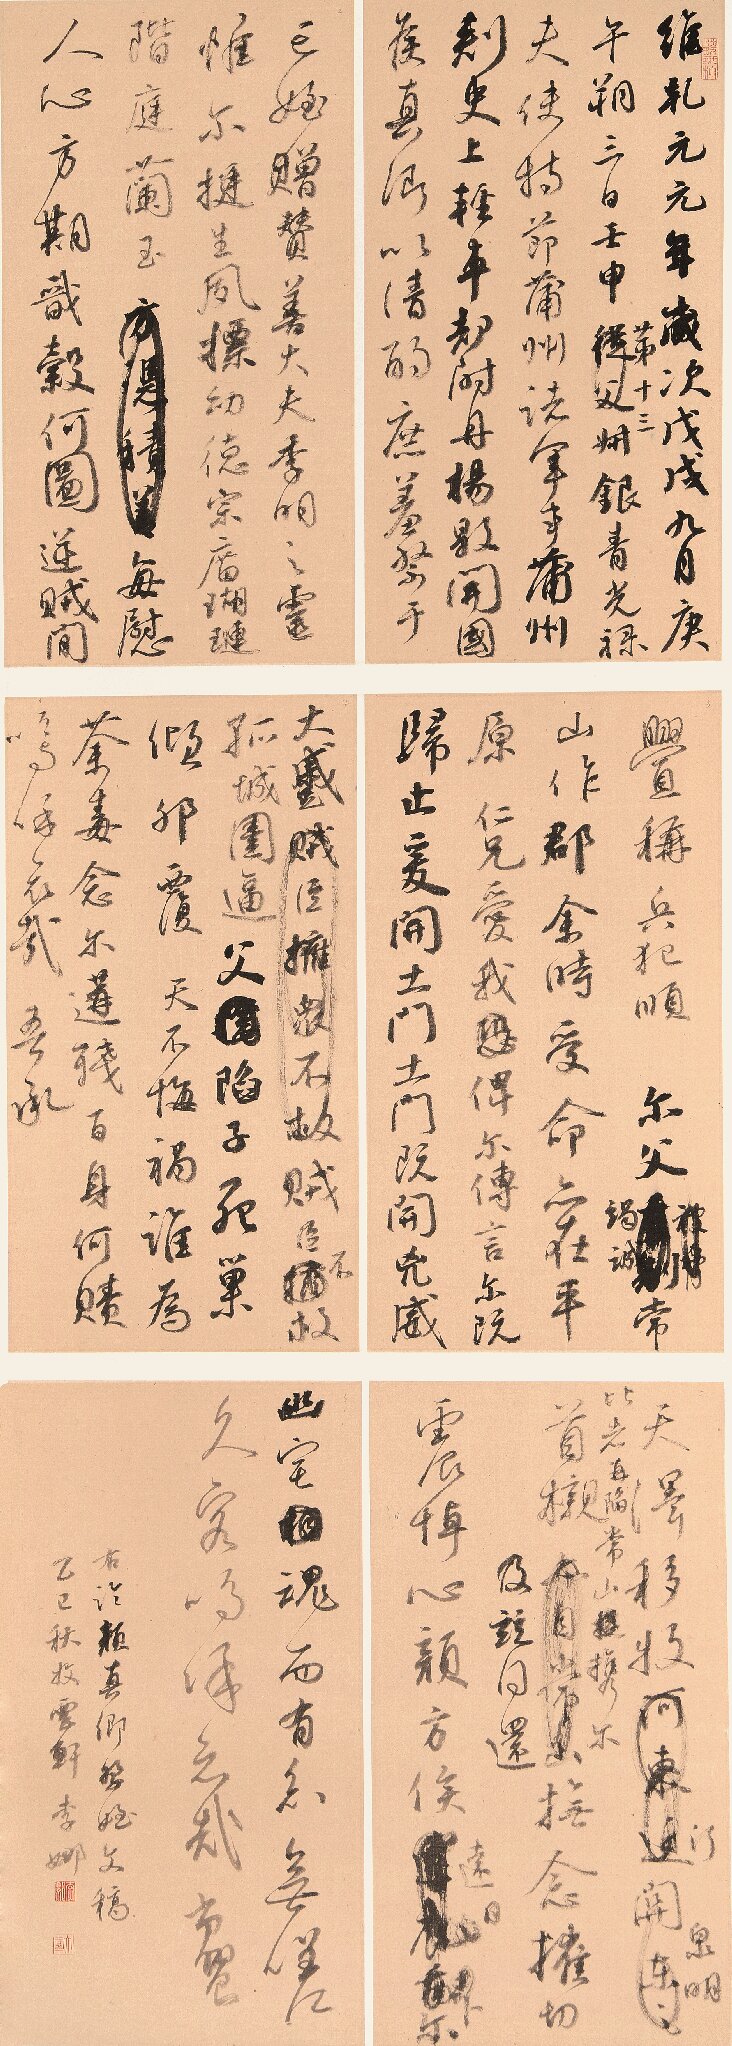 維乾元元年歲次戊戌九月庚
午朔三日壬申第十三從父姊銀青光祿
夫使持節蒲州諸軍事蒲州
刺史上輕車都尉丹楊縣開國
侯真卿以清酌庶羞祭于
亡姪贈贊善大夫季明之靈
惟爾挺生夙標幼德宗廟瑚璉
階庭蘭玉方憑積善每慰
人心方期戩穀何圖逆賊間
釁稱兵犯順爾父竭誠常
山作郡余時受命亦在平
原仁兄愛我恐俾爾傳言爾既
歸止爰開土門土門既開兇威
大蹙賊臣擁眾不救賊臣不救
孤城圍逼父陷子死巢
傾卵覆天不悔禍誰為
荼毒念爾遘殘百身何贖
嗚呼哀哉吾承
天澤移牧河東近河關東泉明
比者再陷常山攜爾
首櫬及茲同還撫念摧切
震悼心顏方俟遠日爾
幽宅魂而有知無嗟
久客嗚呼哀哉尚饗
右臨顏真卿祭姪文稿
乙巳秋於雲軒李娜